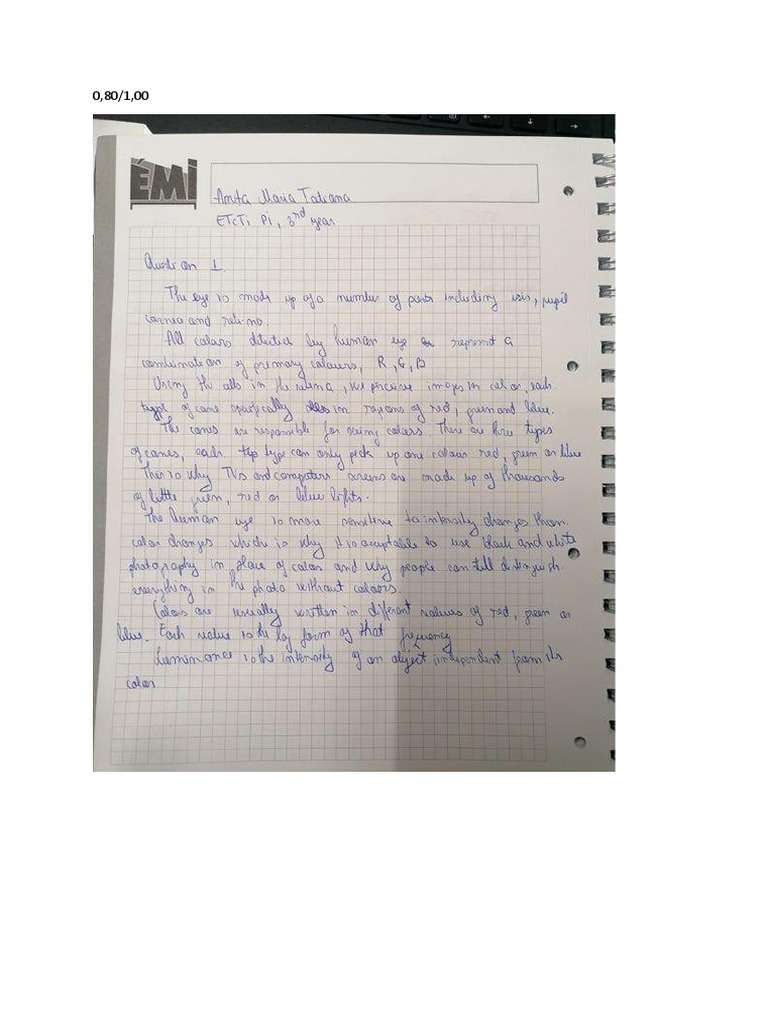 0,80/1,00
ÉMI
Anita Maria Tatiana
ETcTi Pi, 3rd year
Question 1.
The eye is made up of a number of parts including iris, pupil
cornea and retina.
All colors detected by human eye represent a
combination of primary colours, R, G, B
Using the cells in the retina, we perceive images in color, each
type of cone specifically in regions of red, green and blue.
The cones are responsible for seeing colors. There are three types
of cones, each type can only pick up one colour red, green or blue
This is why TVs and computers screens are made up of thousands
of little green, red or blue lights.
The human eye is more sensitive to intensity changes than
color changes which is why it is acceptable to use black and white
photography in place of color and why people can tell distinguish
everything in the photo without colours.
Colors are usually written in different values of red, green or
blue. Each value is the log form of that frequency
Luminance is the intensity of an object independent from its
color